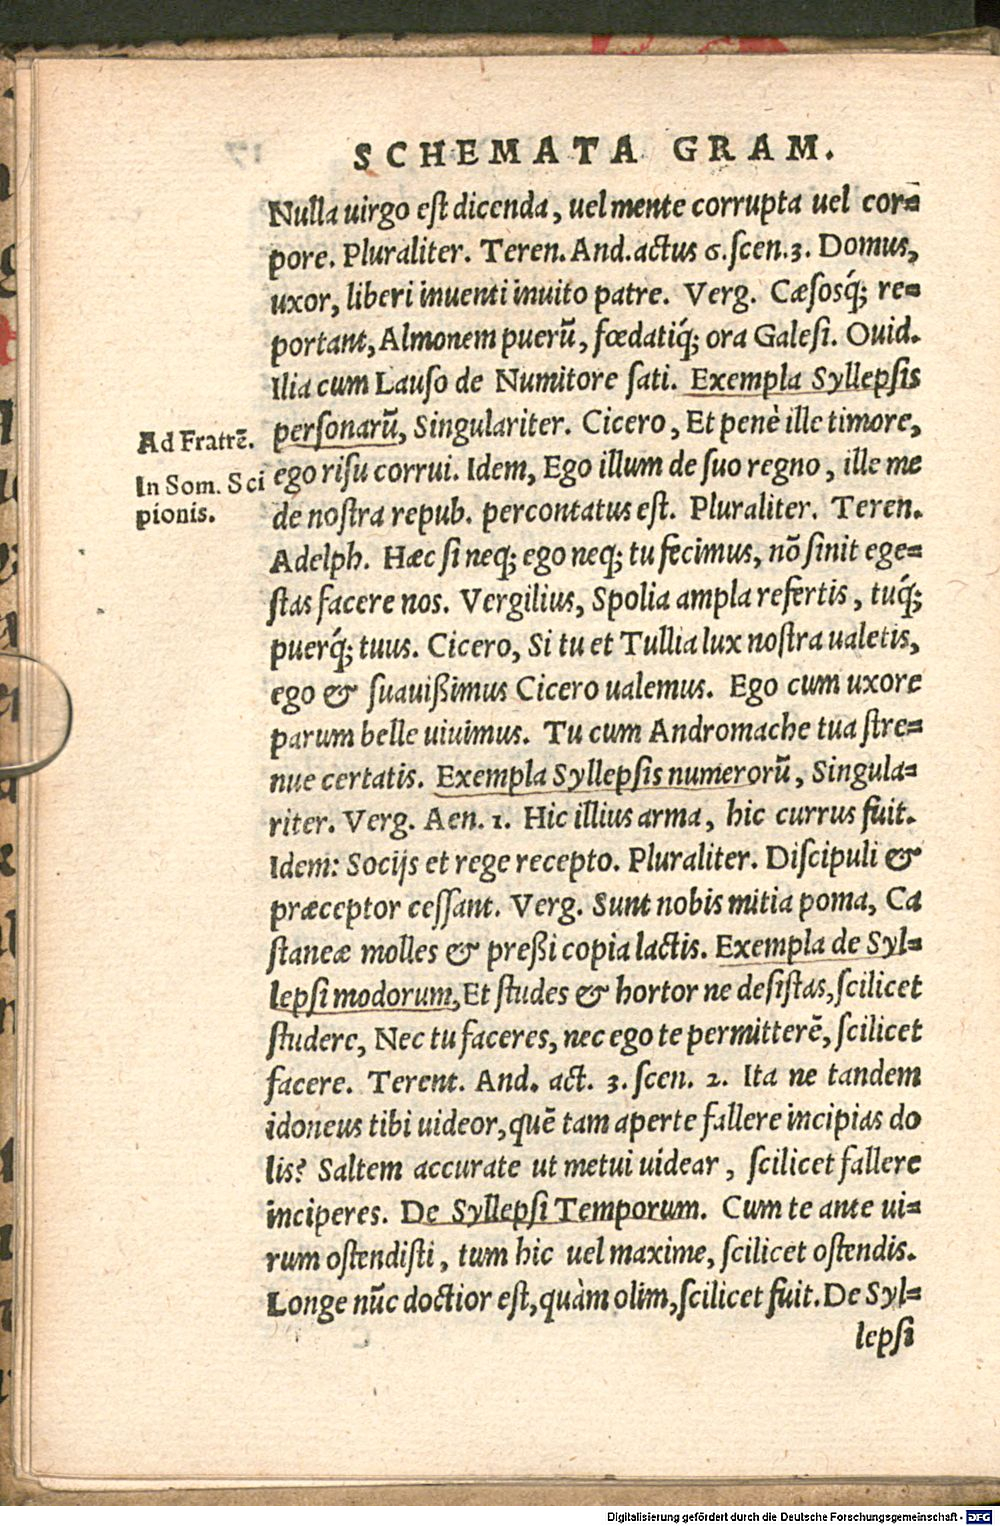 SCHEMATA GRAM.
Nulla uirgo est dicenda, uel mente corrupta uel cor=
pore. Pluraliter. Teren. And. actus 6. scen. 3. Domus,
uxor, liberi inuenti inuito patre. Verg. Cæsosq́; re=
portant, Almonem puerū, fœdatiq́; ora Galesi. Ouid.
Ilia cum Lauso de Numitore sati. Exempla Syllepsis
personarū, Singulariter. Cicero, Et penè ille timore,
Ad Fratrē.
ego risu corrui. Idem, Ego illum de suo regno, ille me
In Som. Sci
pionis.
de nostra repub. percontatus est. Pluraliter. Teren.
Adelph. Hæc si neq; ego neq; tu fecimus, nō sinit ege=
stas facere nos. Vergilius, Spolia ampla refertis, tuq́;
puerq́; tuus. Cicero, Si tu et Tullia lux nostra ualetis,
ego & suauißimus Cicero ualemus. Ego cum uxore
parum belle uiuimus. Tu cum Andromache tua stre=
nue certatis. Exempla Syllepsis numerorū, Singula=
riter. Verg. Aen. 1. Hic illius arma, hic currus fuit.
Idem: Socijs et rege recepto. Pluraliter. Discipuli &
præceptor cessant. Verg. Sunt nobis mitia poma, Ca
staneæ molles & preßi copia lactis. Exempla de Syl=
lepsi modorum, Et studes & hortor ne desistas, scilicet
studere, Nec tu faceres, nec ego te permitterē, scilicet
facere. Terent. And. act. 3. scen. 2. Ita ne tandem
idoneus tibi uideor, quē tam aperte fallere incipias do
lis? Saltem accurate ut metui uidear, scilicet fallere
inciperes. De Syllepsi Temporum. Cum te ante ui=
rum ostendisti, tum hic uel maxime, scilicet ostendis.
Longe nūc doctior est, quàm olim, scilicet fuit. De Syl=
lepsi
Digitalisierung gefördert durch die Deutsche Forschungsgemeinschaft - DFG